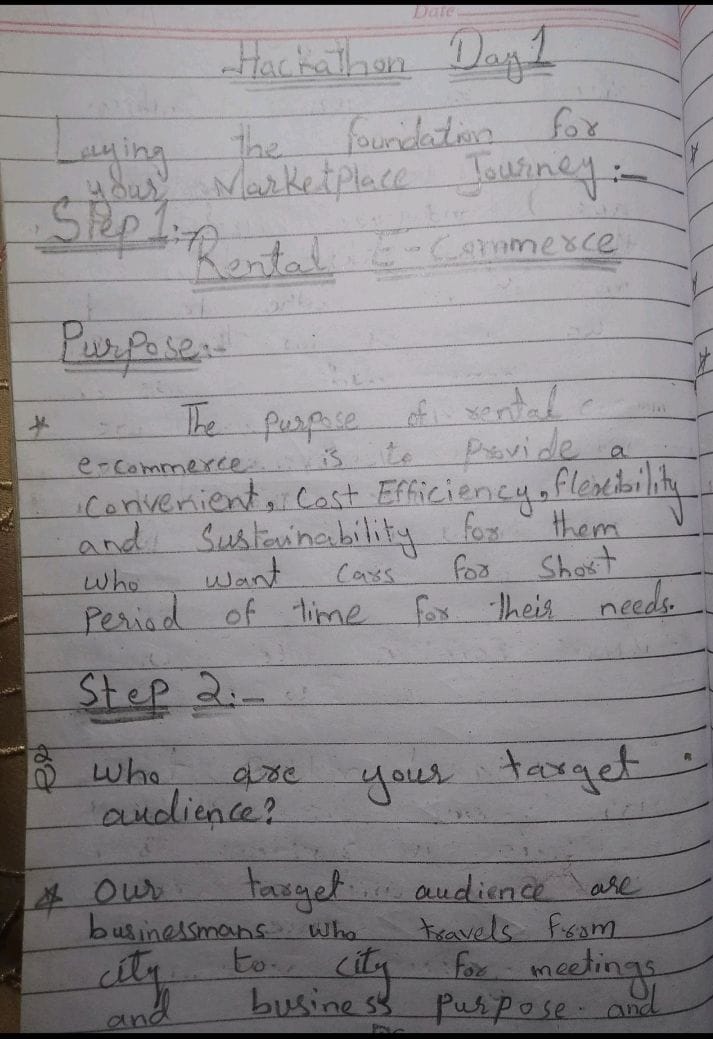 Date
Hackathon Day 1
Laying the foundation for
your Marketplace Journey :-
Step 1:-
Rental E-Commerce
Purpose:-
* The purpose of rental
e-commerce is to Provide a
Convenient, Cost Efficiency, flexibility
and Sustainability for them
who want Cars for Short
Period of time for their needs.
Step 2:-
Q2 who are your target
audience?
* Our target audience are
businessmans who travels from
city to city for meetings
and business purpose and